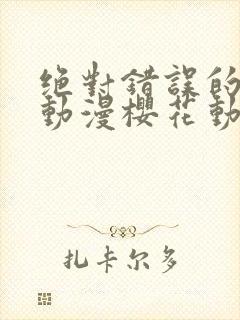 绝對錯誤的
動漫櫻花動
扎卡尔多